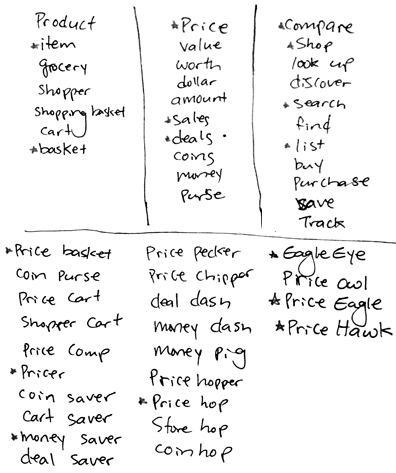 Product
*item
grocery
Shopper
Shopping basket
Cart
*basket
*Price
value
worth
dollar
amount
*sales
*deals.
coins
money
Purse
*Compare
*Shop
look up
discover
*search
find
*list
buy
Purchase
save
Track
*Price basket
coin purse
Price cart
Shopper Cart
Price Comp
*Pricer
coin saver
Cart saver
*money saver
deal saver
Price pecker
Price chipper
deal dash
money dash
money pig
Price hopper
*Price hop
Store hop
coin hop
*Eagle Eye
Price owl
*Price Eagle
*Price Hawk